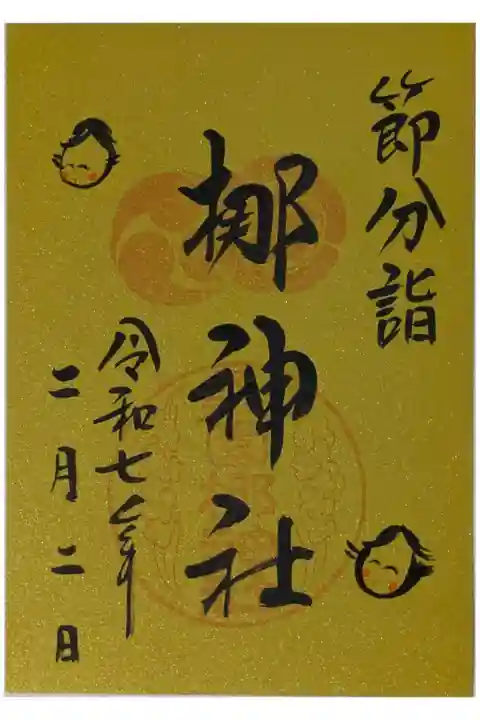 節分詣
梛神社
令和七年
二月二日